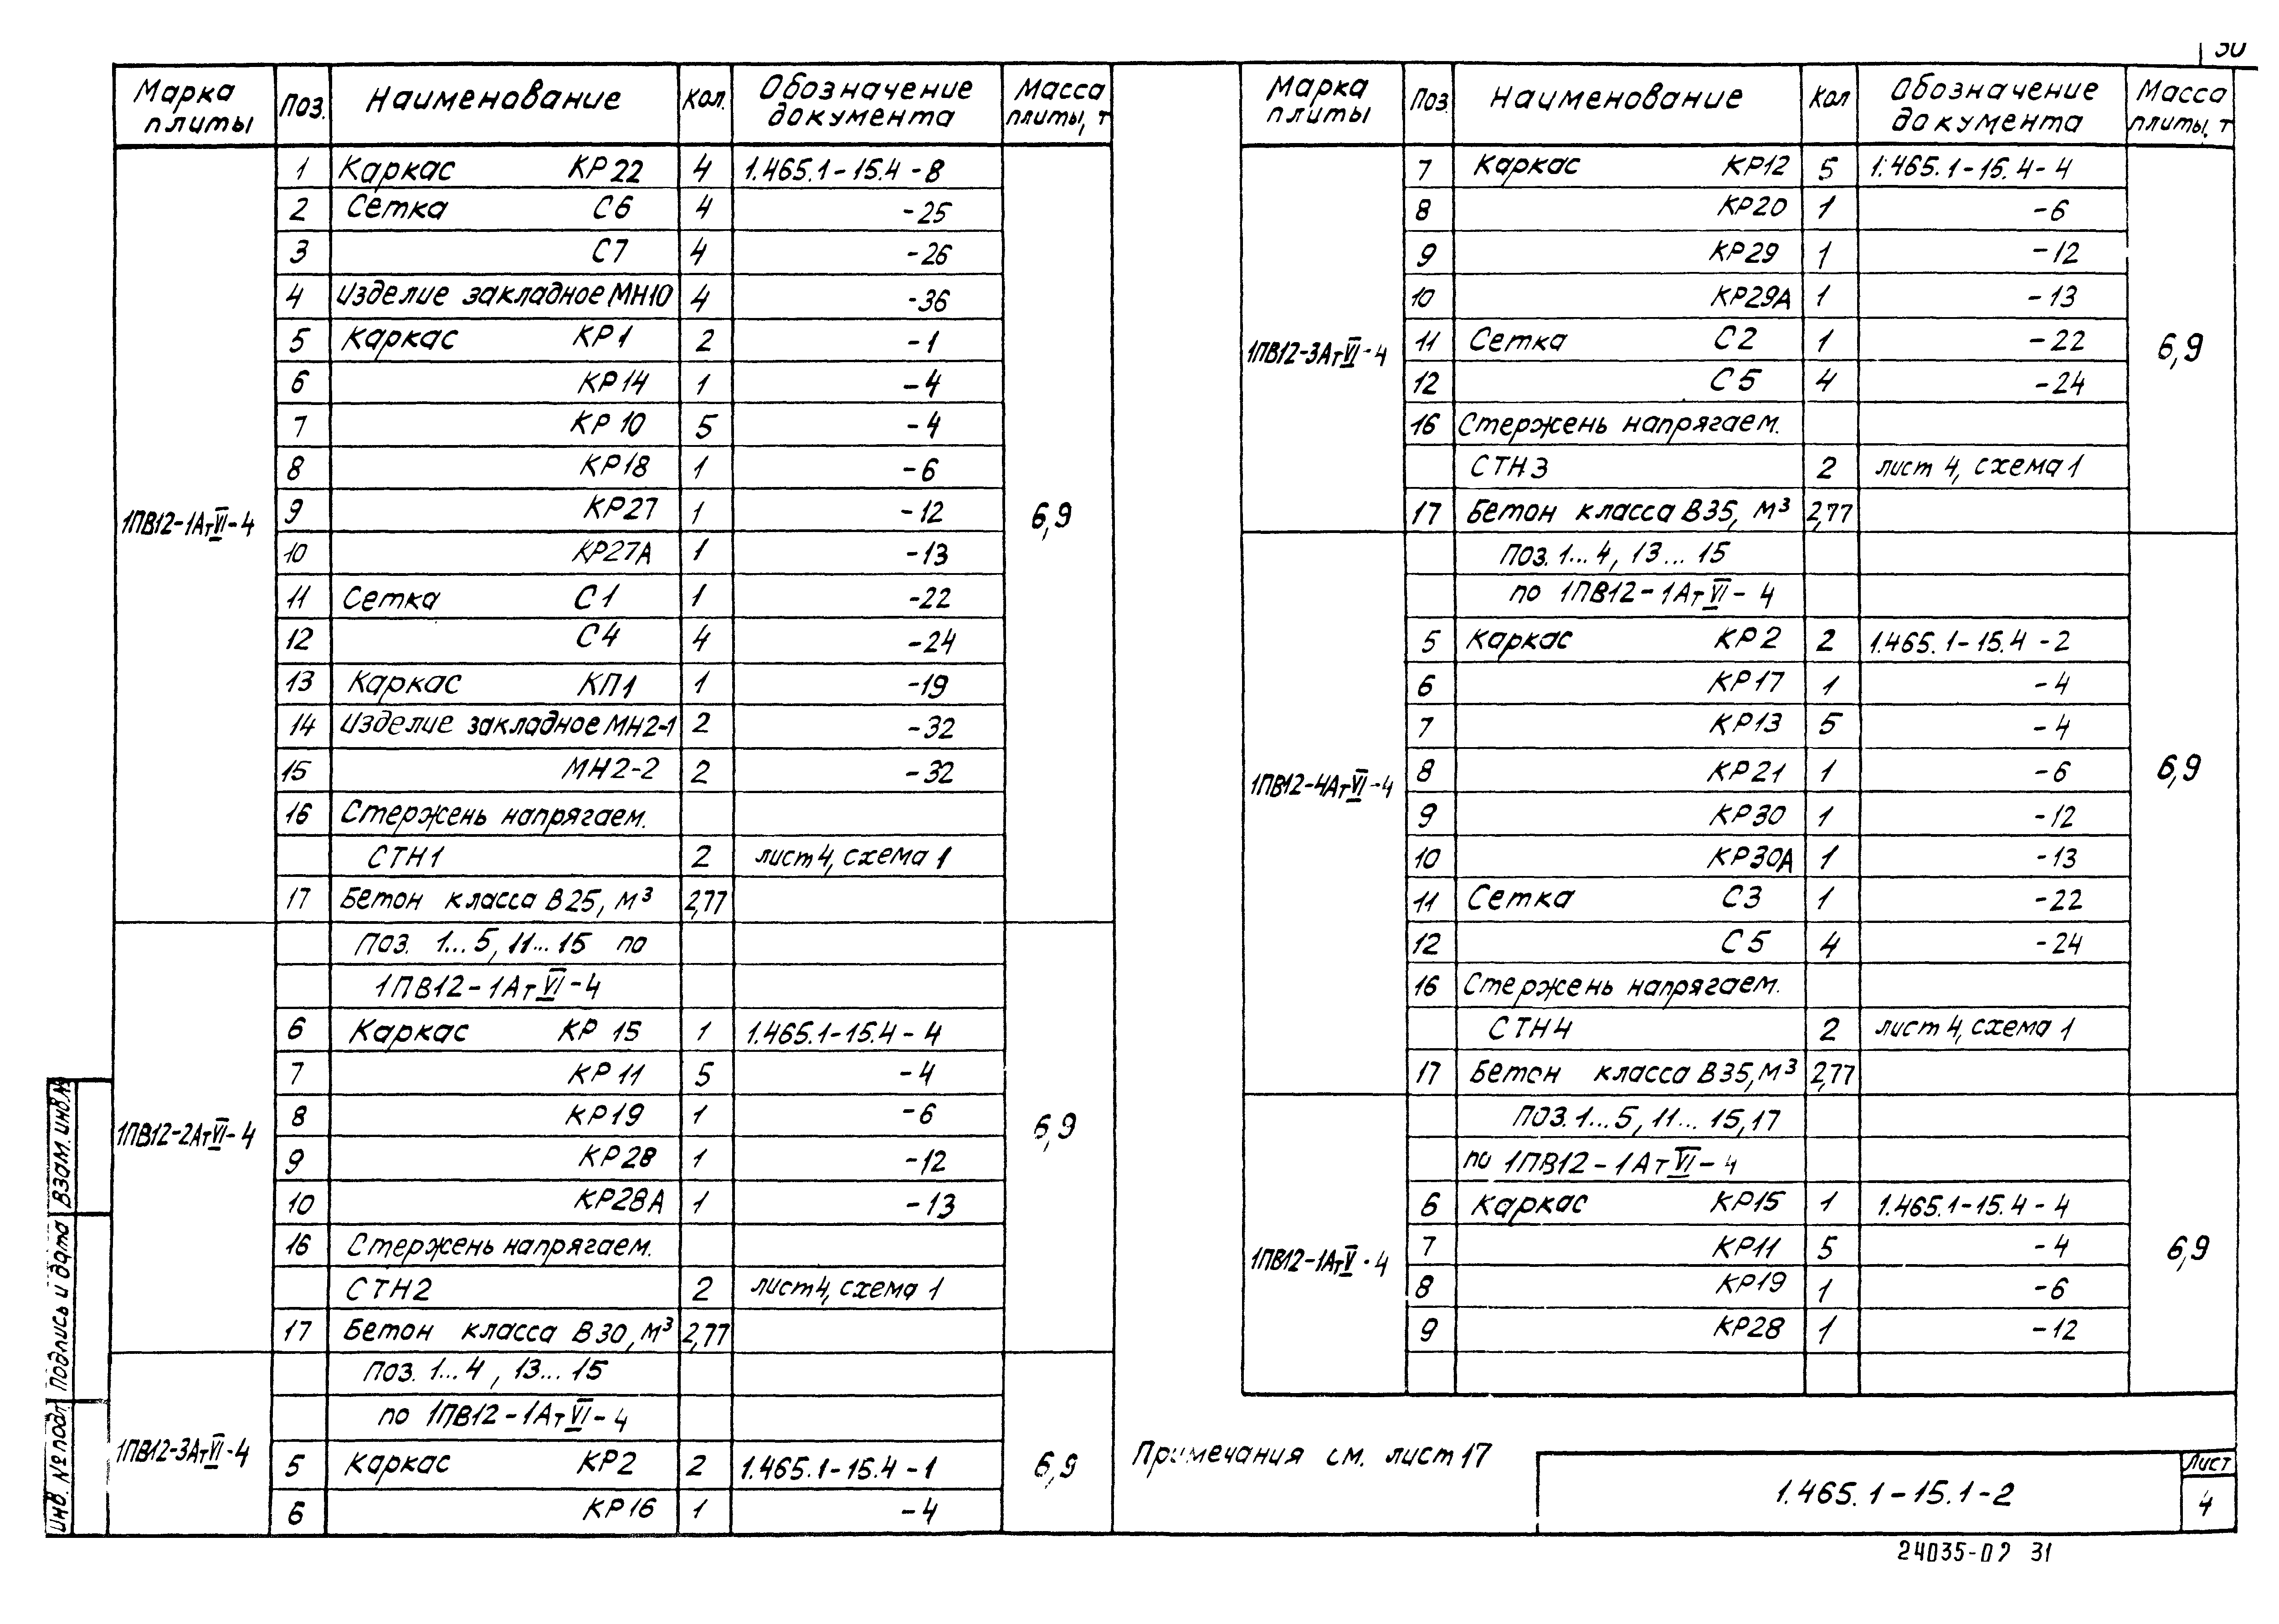 30
Марка плиты Поз. Наименование Кол. Обозначение документа Масса плиты, т
1ПВ12-1АтVI-4 6,9
1 Каркас КР22 4 1.465.1-15.4-8
2 Сетка С6 4 -25
3 С7 4 -26
4 Изделие закладное МН10 4 -36
5 Каркас КР1 2 -1
6 КР14 1 -4
7 КР10 5 -4
8 КР18 1 -6
9 КР27 1 -12
10 КР27А 1 -13
11 Сетка С1 1 -22
12 С4 4 -24
13 Каркас КП1 1 -19
14 Изделие закладное МН2-1 2 -32
15 МН2-2 2 -32
16 Стержень напрягаем.
СТН1 2 лист 4, схема 1
17 Бетон класса В25, м³ 2,77
1ПВ12-2АтVI-4 6,9
Поз. 1...5, 11...15 по
1ПВ12-1АтVI-4
6 Каркас КР15 1 1.465.1-15.4-4
7 КР11 5 -4
8 КР19 1 -6
9 КР28 1 -12
10 КР28А 1 -13
16 Стержень напрягаем.
СТН2 2 лист 4, схема 1
17 Бетон класса В30, м³ 2,77
1ПВ12-3АтVI-4 6,9
Поз. 1...4, 13...15
по 1ПВ12-1АтVI-4
5 Каркас КР2 2 1.465.1-15.4-1
6 КР16 1 -4
Марка плиты Поз. Наименование Кол Обозначение документа Масса плиты, т
1ПВ12-3АтVI-4 6,9
7 Каркас КР12 5 1.465.1-15.4-4
8 КР20 1 -6
9 КР29 1 -12
10 КР29А 1 -13
11 Сетка С2 1 -22
12 С5 4 -24
16 Стержень напрягаем.
СТН3 2 лист 4, схема 1
17 Бетон класса В35, м³ 2,77
1ПВ12-4АтVI-4 6,9
Поз. 1...4, 13...15
по 1ПВ12-1АтVI-4
5 Каркас КР2 2 1.465.1-15.4-2
6 КР17 1 -4
7 КР13 5 -4
8 КР21 1 -6
9 КР30 1 -12
10 КР30А 1 -13
11 Сетка С3 1 -22
12 С5 4 -24
16 Стержень напрягаем.
СТН4 2 лист 4, схема 1
17 Бетон класса В35, м³ 2,77
1ПВ12-1АтV-4 6,9
Поз. 1...5, 11...15, 17
по 1ПВ12-1АтVI-4
6 Каркас КР15 1 1.465.1-15.4-4
7 КР11 5 -4
8 КР19 1 -6
9 КР28 1 -12
Примечания см. лист 17
1.465.1-15.1-2
Лист
4
24035-02 31
Инв. № подл Подпись и дата Взам. инв. №